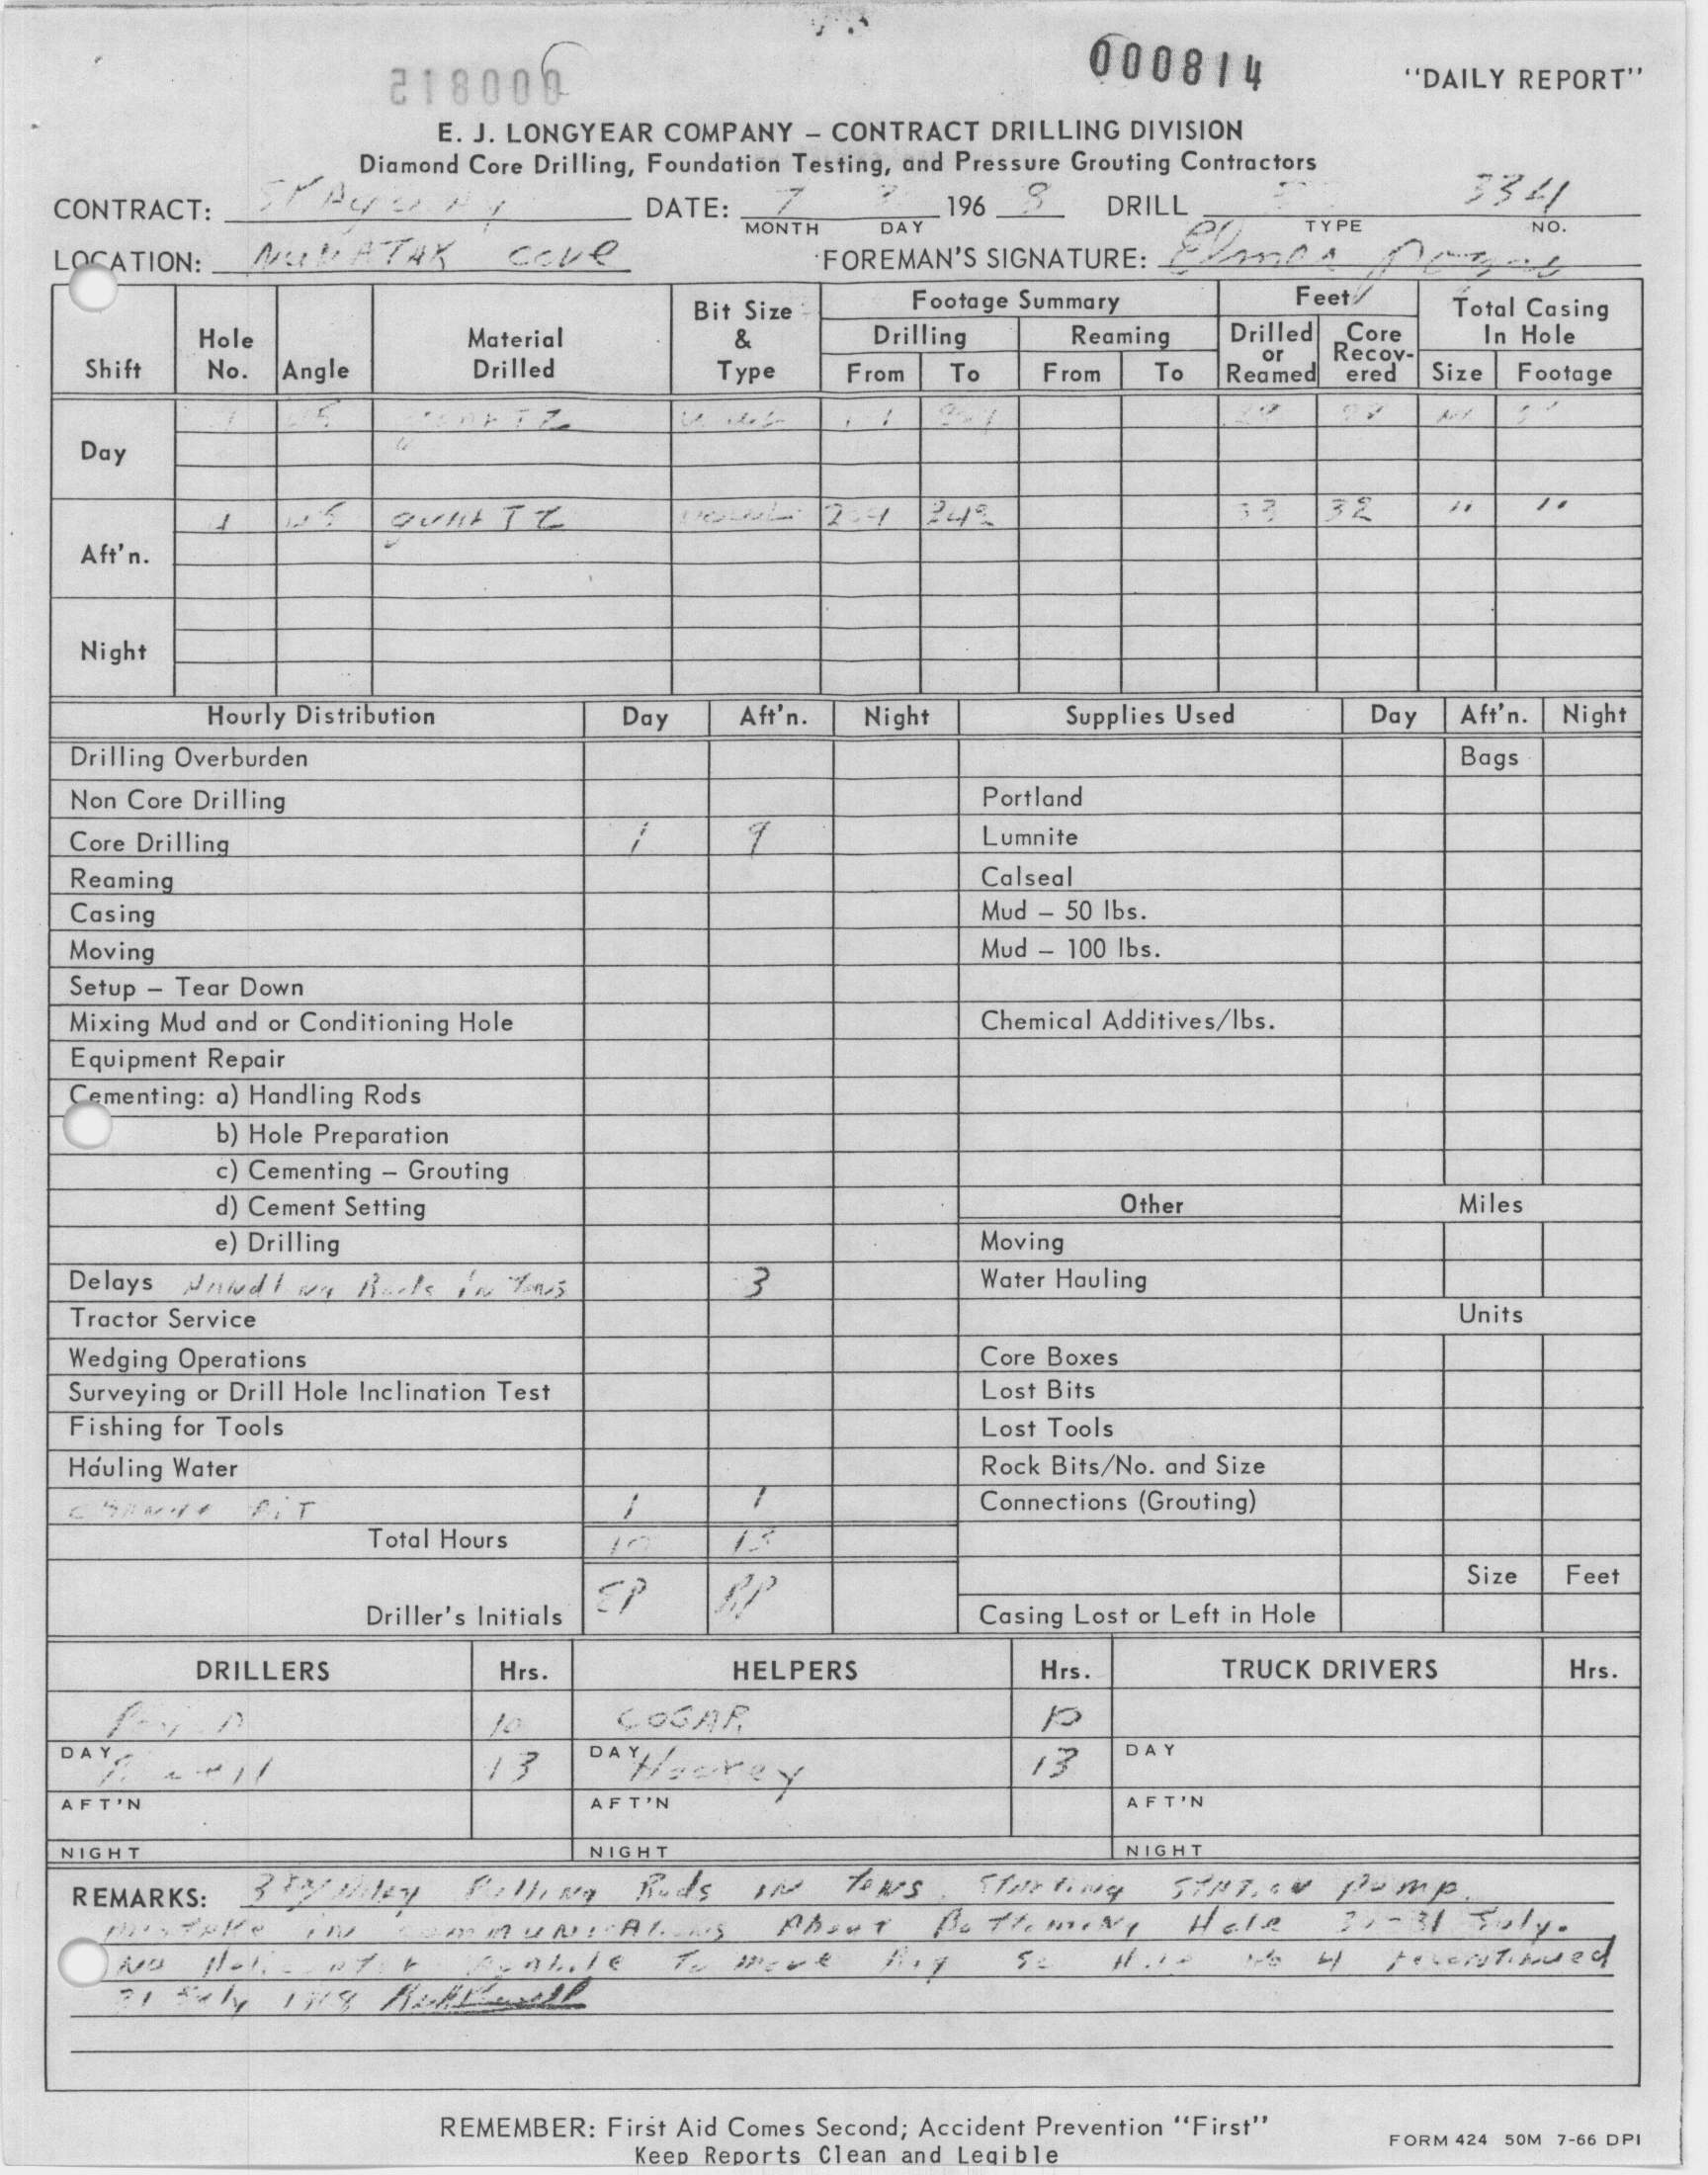 000814
"DAILY REPORT"
E. J. LONGYEAR COMPANY – CONTRACT DRILLING DIVISION
Diamond Core Drilling, Foundation Testing, and Pressure Grouting Contractors
CONTRACT: DATE: 7 196 8 DRILL 334
MONTH DAY TYPE NO.
LOCATION: NUNATAK COVE FOREMAN'S SIGNATURE: Elmer
Shift Hole No. Angle Material Drilled Bit Size & Type Footage Summary Feet Total Casing In Hole
Drilling Reaming Drilled or Reamed Core Recovered
From To From To Size Footage
Day 45
Aft'n. 4 45 QUARTZ 342 33 32 " "
Night
Hourly Distribution Day Aft'n. Night Supplies Used Day Aft'n. Night
Drilling Overburden Bags
Non Core Drilling Portland
Core Drilling 1 9 Lumnite
Reaming Calseal
Casing Mud – 50 lbs.
Moving Mud – 100 lbs.
Setup – Tear Down
Mixing Mud and or Conditioning Hole Chemical Additives/lbs.
Equipment Repair
Cementing: a) Handling Rods
b) Hole Preparation
c) Cementing – Grouting
d) Cement Setting Other Miles
e) Drilling Moving
Delays Handling Rods in Tens 3 Water Hauling
Tractor Service Units
Wedging Operations Core Boxes
Surveying or Drill Hole Inclination Test Lost Bits
Fishing for Tools Lost Tools
Hauling Water Rock Bits/No. and Size
CHANGE BIT 1 1 Connections (Grouting)
Total Hours 10 13
Size Feet
Driller's Initials EP RP Casing Lost or Left in Hole
DRILLERS Hrs. HELPERS Hrs. TRUCK DRIVERS Hrs.
10 COGAR 10
DAY DAY DAY
13 Hookey 13
AFT'N AFT'N AFT'N
NIGHT NIGHT NIGHT
REMARKS: Pulling Rods IN Tens. Starting STATION Pump.
MISTAKE IN COMMUNICATIONS About Bottoming Hole 30-31 July.
No Helicopter To move Rig So Hole No 4
31 July 1968
REMEMBER: First Aid Comes Second; Accident Prevention "First"
Keep Reports Clean and Legible
FORM 424 50M 7-66 DPI